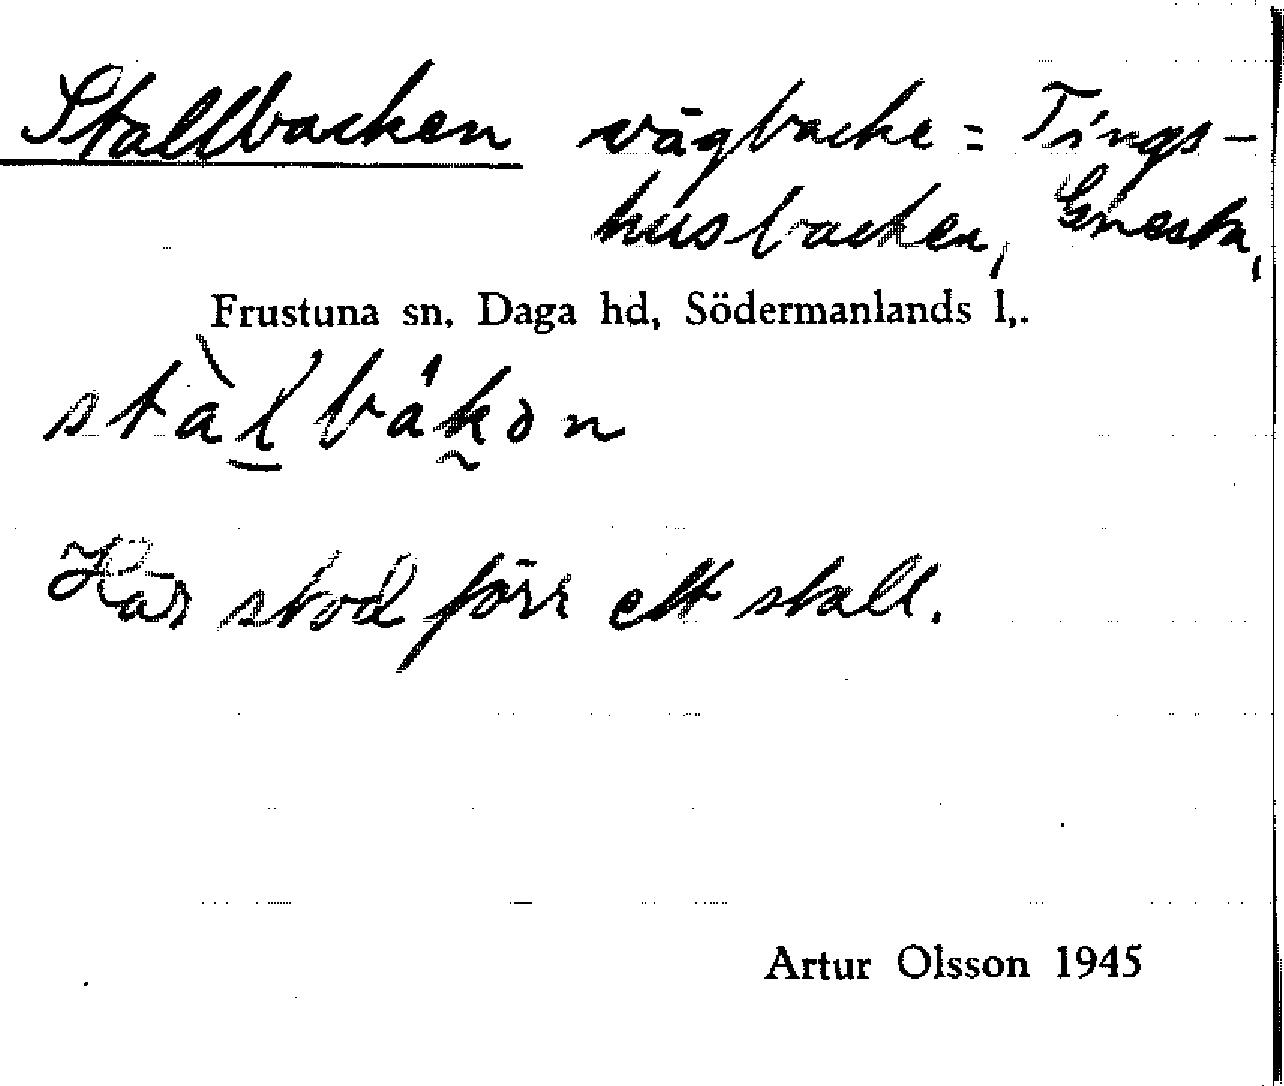 Stallbacken vägbacke = Tings-
husbacken, Gnesta,
Frustuna sn, Daga hd, Södermanlands l,.
stàl̠bák̰ɔn
Här stod förr ett stall.
Artur Olsson 1945